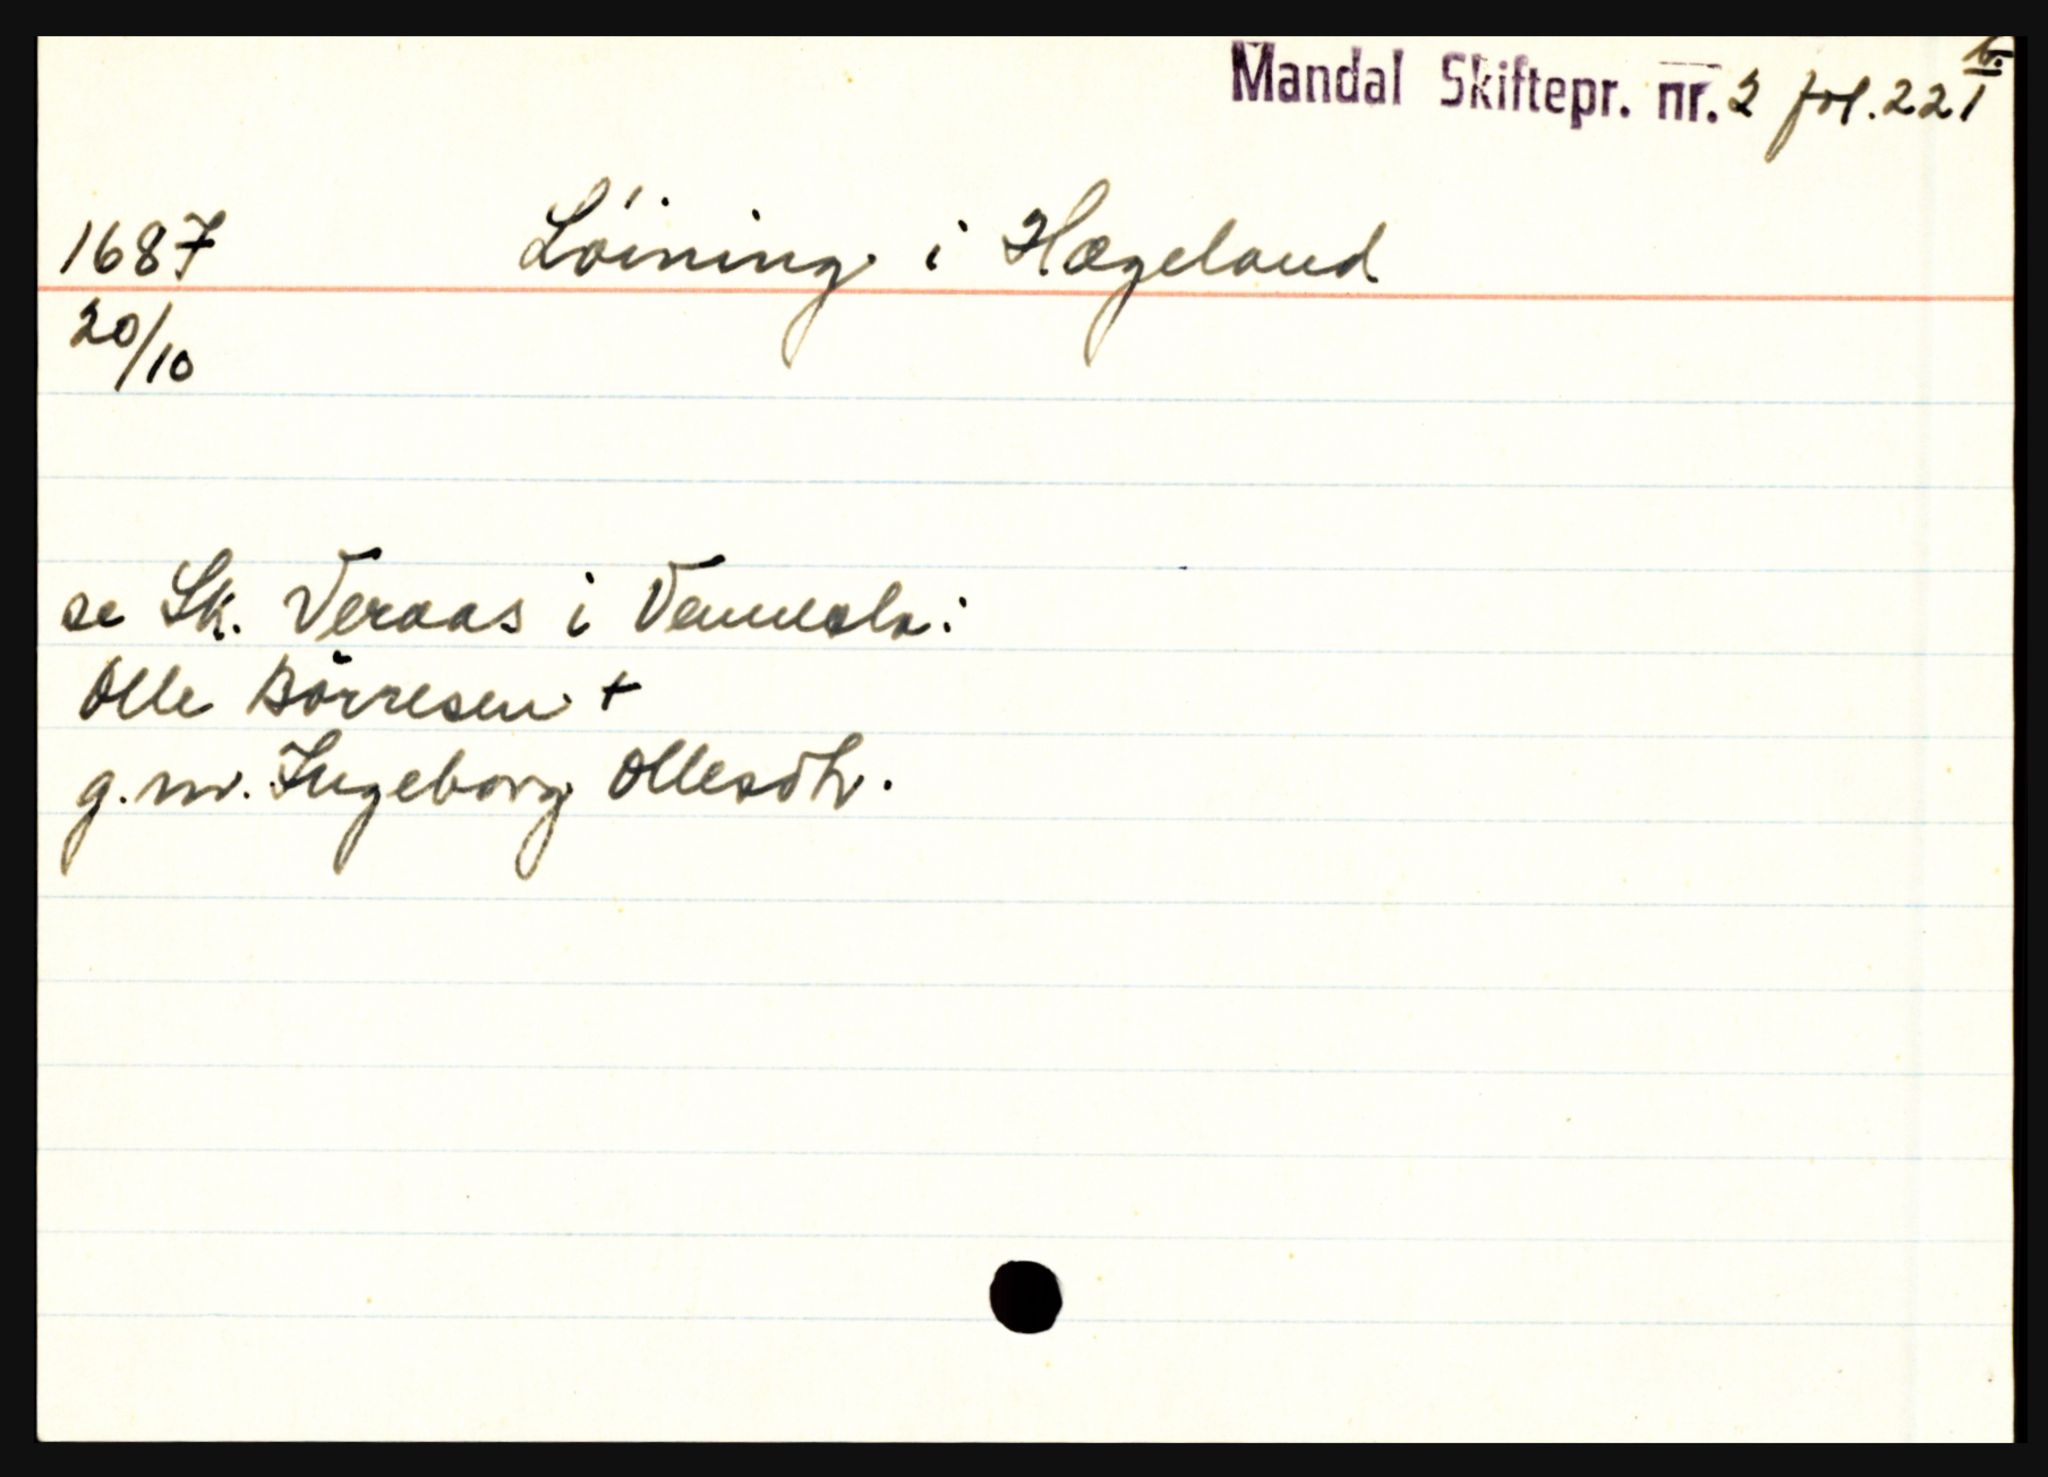 Mandal Skiftepr. nr. 2 fol. 221 b.
1687 Löining i Hægeland
20/10
se Sk. Veraas i Vennesla:
Olle Börresen +
g.m. Ingeborg Ollesdtr.